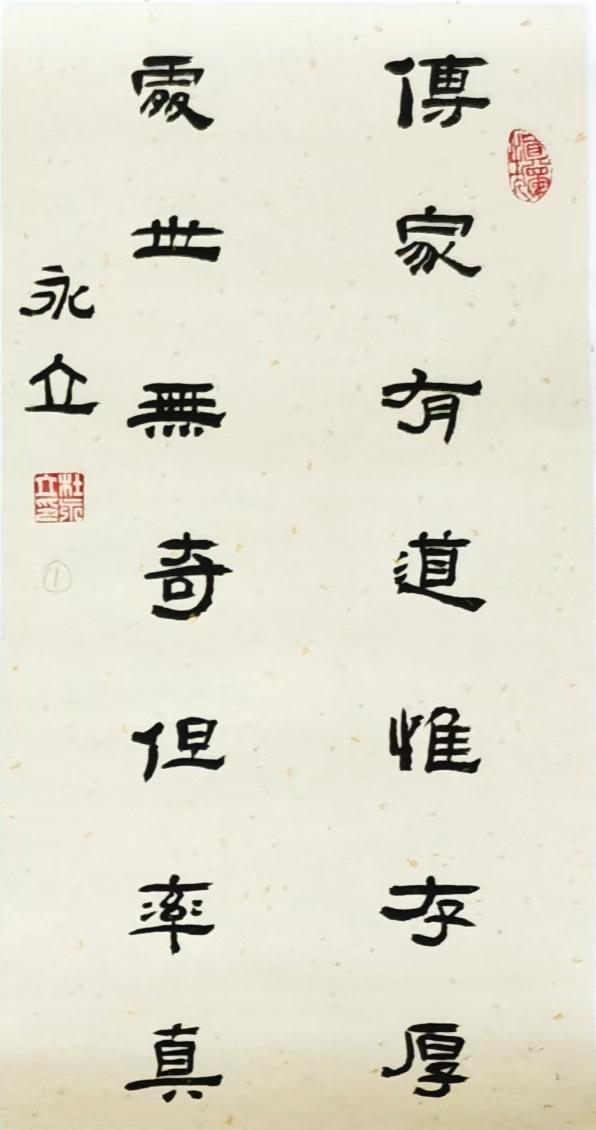 傳家有道惟存厚
處世無奇但率真
永立
杜永立印
1